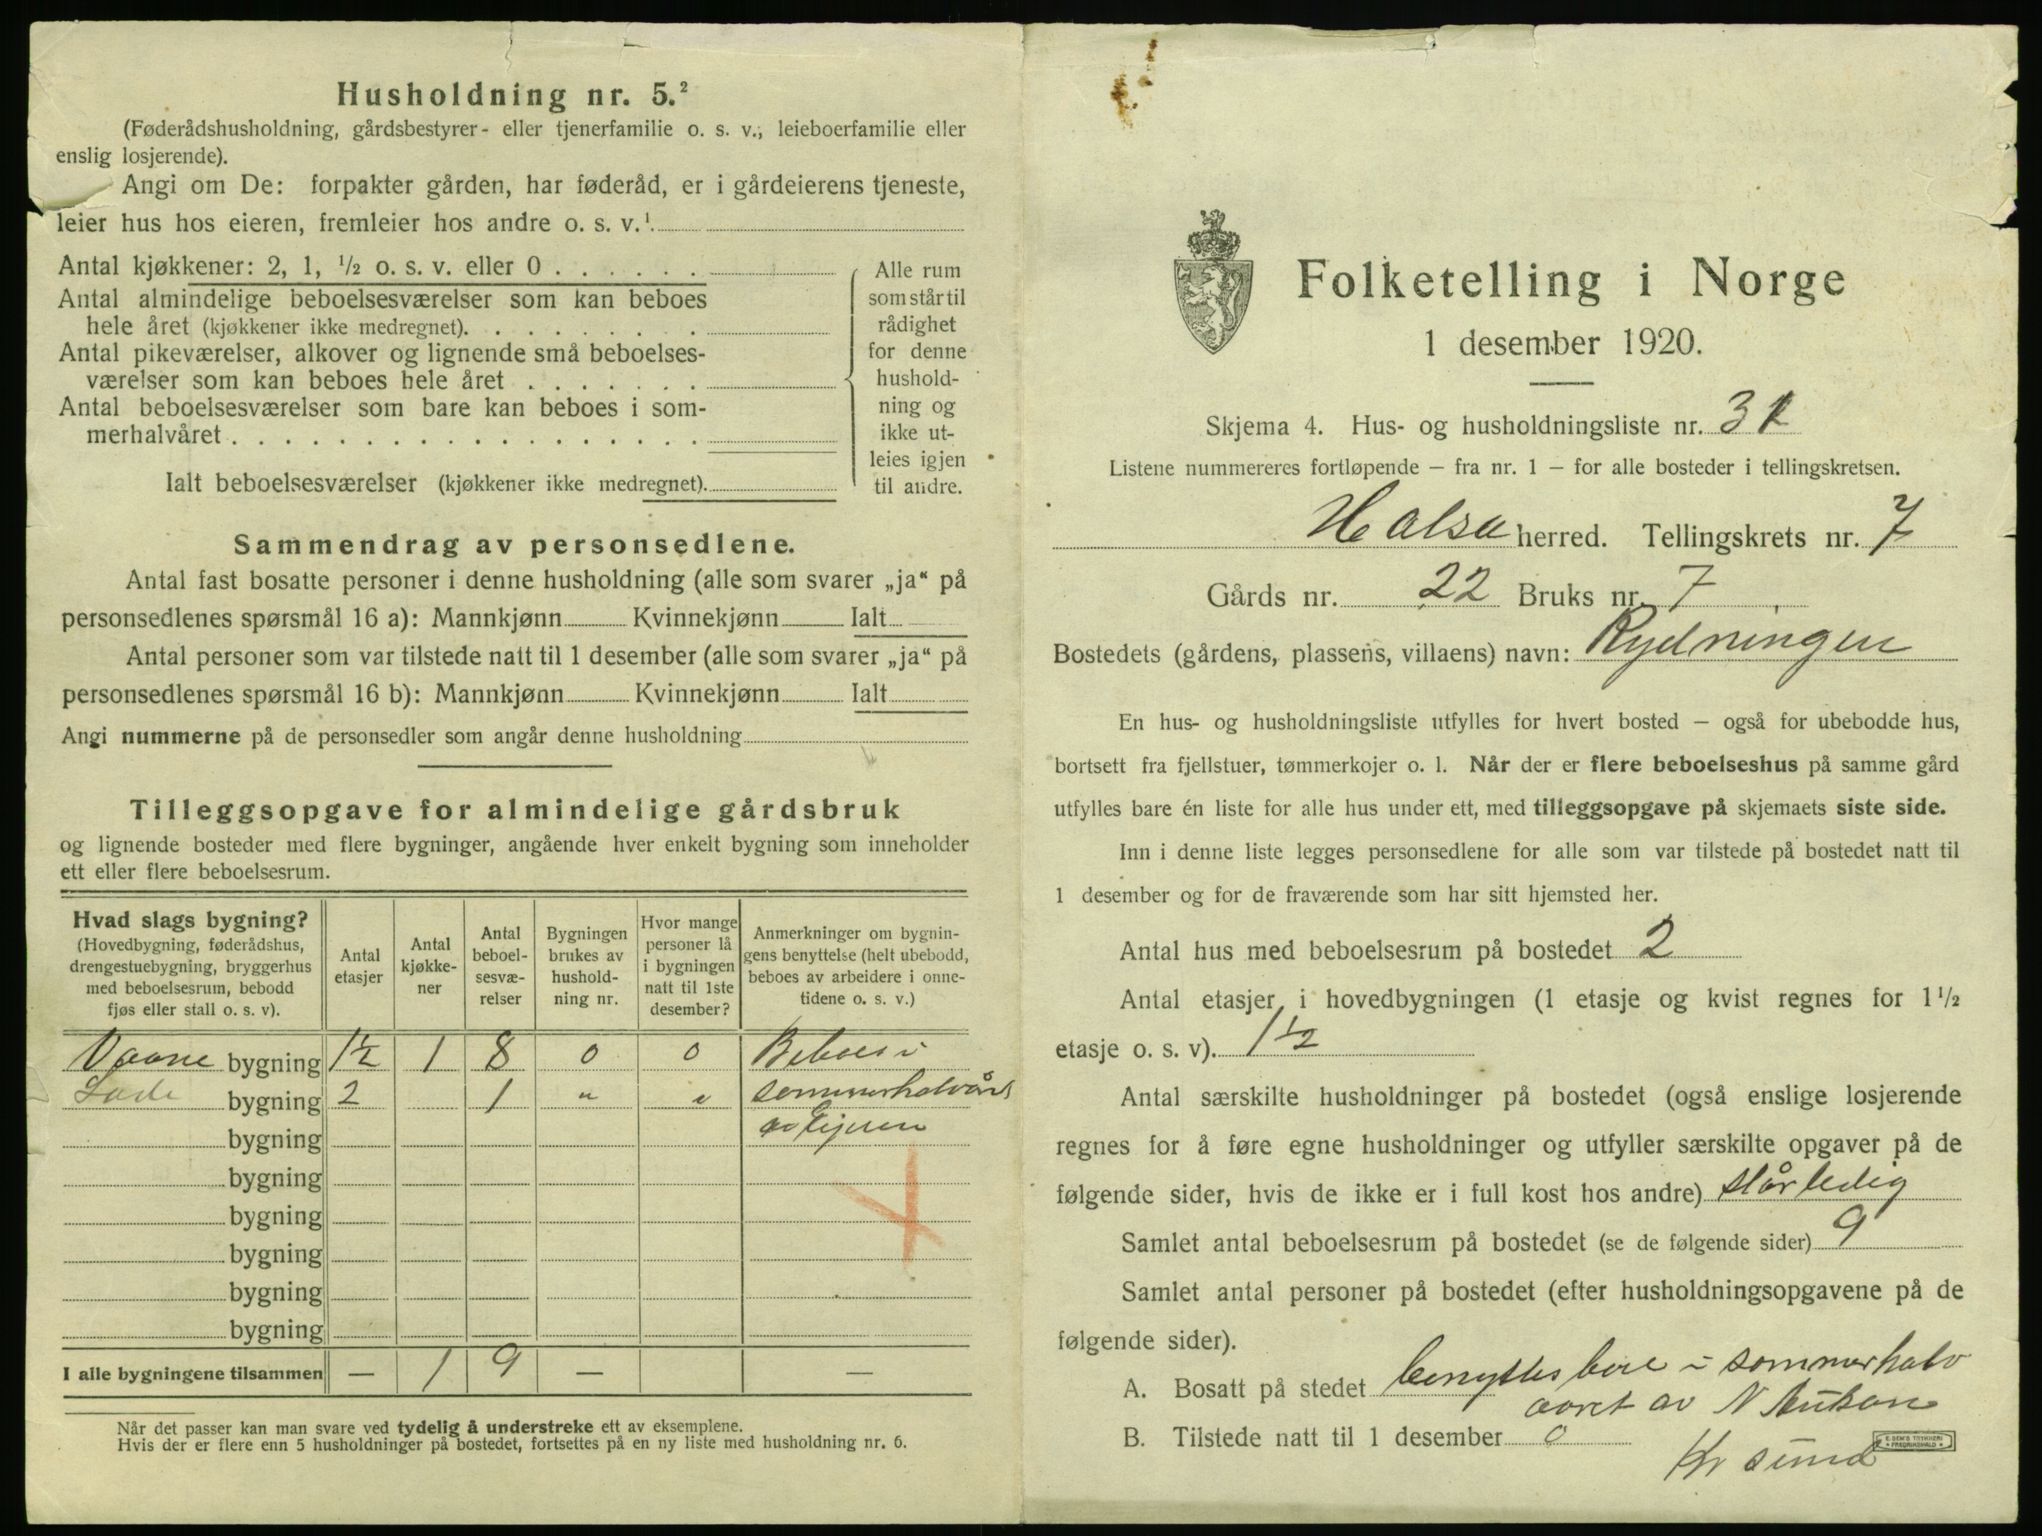 Husholdning nr. 5.²
(Føderådshusholdning, gårdsbestyrer- eller tjenerfamilie o. s. v., leieboerfamilie eller
enslig losjerende).
Angi om De: forpakter gården, har føderåd, er i gårdeierens tjeneste,
leier hus hos eieren, fremleier hos andre o. s. v.¹
Antal kjøkkener: 2, 1, ½ o. s. v. eller 0 . . . . . .
Antal almindelige beboelsesværelser som kan beboes
hele året (kjøkkener ikke medregnet). . . . . . . . .
Antal pikeværelser, alkover og lignende små beboelses-
værelser som kan beboes hele året . . . . . . .
Antal beboelsesværelser som bare kan beboes i som-
merhalvåret . . . . . . . . . . . . . . . . . .
Ialt beboelsesværelser (kjøkkener ikke medregnet).
Alle rum
som står til
rådighet
for denne
hushold-
ning og
ikke ut-
leies igjen
til andre.
Sammendrag av personsedlene.
Antal fast bosatte personer i denne husholdning (alle som svarer „ja“ på
personsedlenes spørsmål 16 a): Mannkjønn Kvinnekjønn Ialt
Antal personer som var tilstede natt til 1 desember (alle som svarer „ja“ på
personsedlenes spørsmål 16 b): Mannkjønn Kvinnekjønn Ialt
Angi nummerne på de personsedler som angår denne husholdning
Tilleggsopgave for almindelige gårdsbruk
og lignende bosteder med flere bygninger, angående hver enkelt bygning som inneholder
ett eller flere beboelsesrum.
Hvad slags bygning?
(Hovedbygning, føderådshus,
drengestuebygning, bryggerhus
med beboelsesrum, bebodd
fjøs eller stall o. s. v).
Antal
etasjer
Antal
kjøkke-
ner
Antal
beboel-
sesvæ-
relser
Bygningen
brukes av
hushold-
ning nr.
Hvor mange
personer lå
i bygningen
natt til 1ste
desember?
Anmerkninger om bygnin-
gens benyttelse (helt ubebodd,
beboes av arbeidere i onne-
tidene o. s. v.)
Vaane bygning 1½ 1 8 0 0 Beboes i
Lade bygning 2 1 " " sommerhalvåret
bygning av Eijeren
bygning
bygning
bygning
bygning
bygning
I alle bygningene tilsammen — 1 9 — —
Når det passer kan man svare ved tydelig å understreke ett av eksemplene.
Hvis der er flere enn 5 husholdninger på bostedet, fortsettes på en ny liste med husholdning nr. 6.
Folketelling i Norge
1 desember 1920.
Skjema 4. Hus- og husholdningsliste nr. 31
Listene nummereres fortløpende – fra nr. 1 – for alle bosteder i tellingskretsen.
Halsa herred. Tellingskrets nr. 7
Gårds nr. 22 Bruks nr. 7
Bostedets (gårdens, plassens, villaens) navn: Rydningen
En hus- og husholdningsliste utfylles for hvert bosted – også for ubebodde hus,
bortsett fra fjellstuer, tømmerkojer o. l. Når der er flere beboelseshus på samme gård
utfylles bare én liste for alle hus under ett, med tilleggsopgave på skjemaets siste side.
Inn i denne liste legges personsedlene for alle som var tilstede på bostedet natt til
1 desember og for de fraværende som har sitt hjemsted her.
Antal hus med beboelsesrum på bostedet 2
Antal etasjer i hovedbygningen (1 etasje og kvist regnes for 1½
etasje o. s. v). 1½
Antal særskilte husholdninger på bostedet (også enslige losjerende
regnes for å føre egne husholdninger og utfyller særskilte opgaver på de
følgende sider, hvis de ikke er i full kost hos andre) står ledig
Samlet antal beboelsesrum på bostedet (se de følgende sider) 9
Samlet antal personer på bostedet (efter husholdningsopgavene på de
følgende sider).
A. Bosatt på stedet benyttes bare i sommerhalv
aaret av N
B. Tilstede natt til 1 desember 0
Kr sund
E. SEM'S TRYKKERI
FREDRIKSHALD